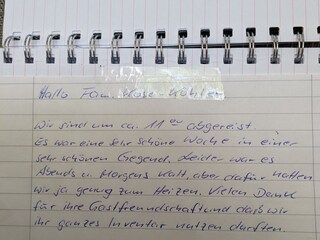 Hallo Fam. Kluse-Köhler
Wir sind um ca. 11ºº abgereist.
Es war eine sehr schöne Woche in einer
sehr schönen Gegend. Leider war es
Abends u. Morgens kalt, aber dafür hatten
wir ja genug zum Heizen. Vielen Dank
für ihre Gastfreundschaft und daß wir
ihr ganzes Inventar nutzen durften.